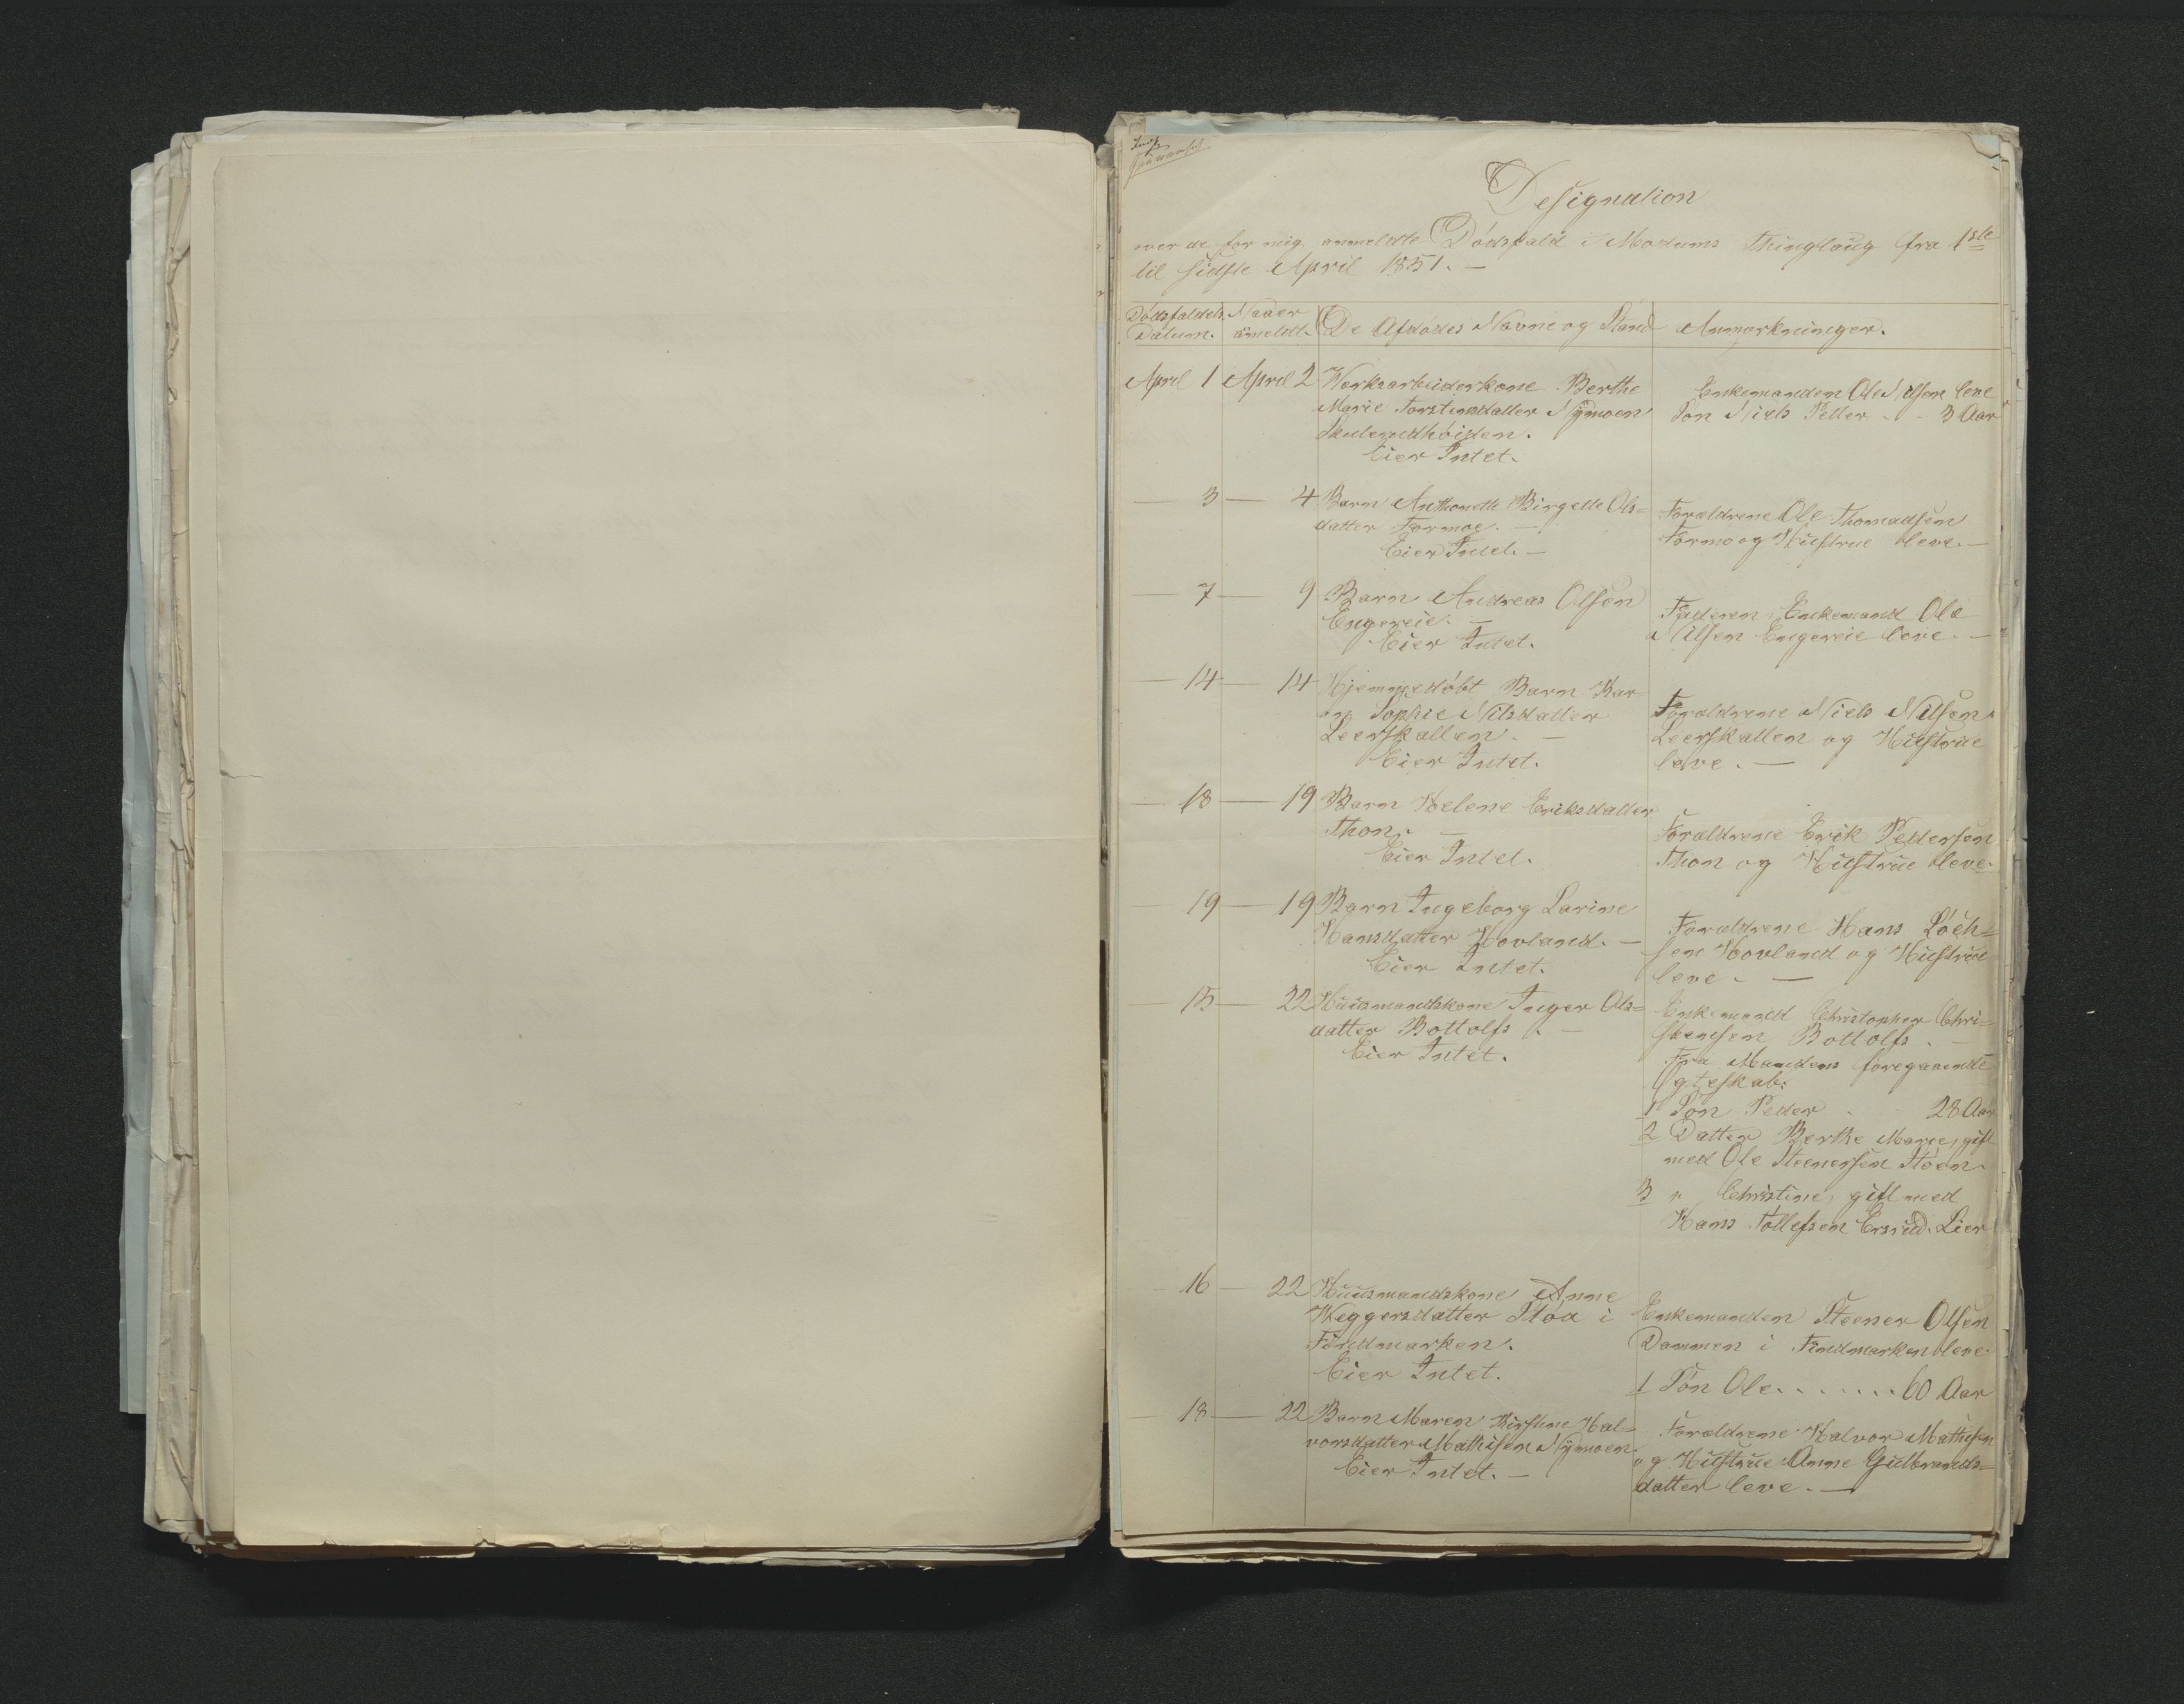 Designation
over de for mig anmeldte Dødsfald i Modums Thinglaug fra 1ste
til sidste April 1851. —
Dødsfaldets Datum. Naaer anmeldt. De Afdødes Navne og Stand Anmærkninger.
April 1 April 2 Værksarbeiderkone Berthe
Marie Torstensdatter Nÿmoen
Skulerudhøiden.
Eier Intet.
Enkemanden Ole Nilsen leve
Søn Niels Petter . - 3 Aar
— 3 — 4 Barn Anthonette Birgette Ols=
datter Formoe. —
Eier Intet. —
Forældrene Ole Thomadsen
Formo og Hustrue leve. —
— 7 — 9 Barn Andreas Olsen
Engereie. —
Eier Intet.
Faderen Enkemand Ole
Nilsen Engereie leve. —
— 14 — 14 Hjemmedøbt Barn Kar
en Sophie Nilsdatter
Leerskallen. —
Eier Intet.
Forældrene Niels Nilsen
Leerskallen og Hustrue
leve. —
— 18 — 19 Barn Helene Eriksdatter
Thon. —
Eier Intet.
Forældrene Erik Pedersen
Thon og Hustrue leve.
— 19 — 19 Barn Ingeborg Larine
Hansdatter Hovland. —
Eier Intet.
Forældrene Hans
sen Hovland og Hustrue
leve. —
— 15 — 22 Huusmandskone Inger Ols=
datter Bottolfs. —
Eier Intet.
Enkemand Christopher Chri=
stensen Bottolfs. —
Fra Mandens foregaaende
Egteskab:
1 Søn Peder . - 28 Aar
2 Datter Berthe Marie, gift
med Ole Steenersen Støen.
3 " Christine, gift med
Hans Tollefsen Ersrud. Lier
— 16 — 22 Huusmandskone Anne
Heggersdatter Støa i
Findmarken.
Eier Intet.
Enkemanden Steener Olsen
Dammen i Findmarken leve
1 Søn Ole. . . . . . . 60 Aar
— 18 — 22 Barn Maren Kirstine Hal=
vorsdatter Mathisen Nÿmoen.
Eier Intet. —
Forældrene Halvor Mathisen
og Hustrue Anne Gulbrands=
datter leve. —